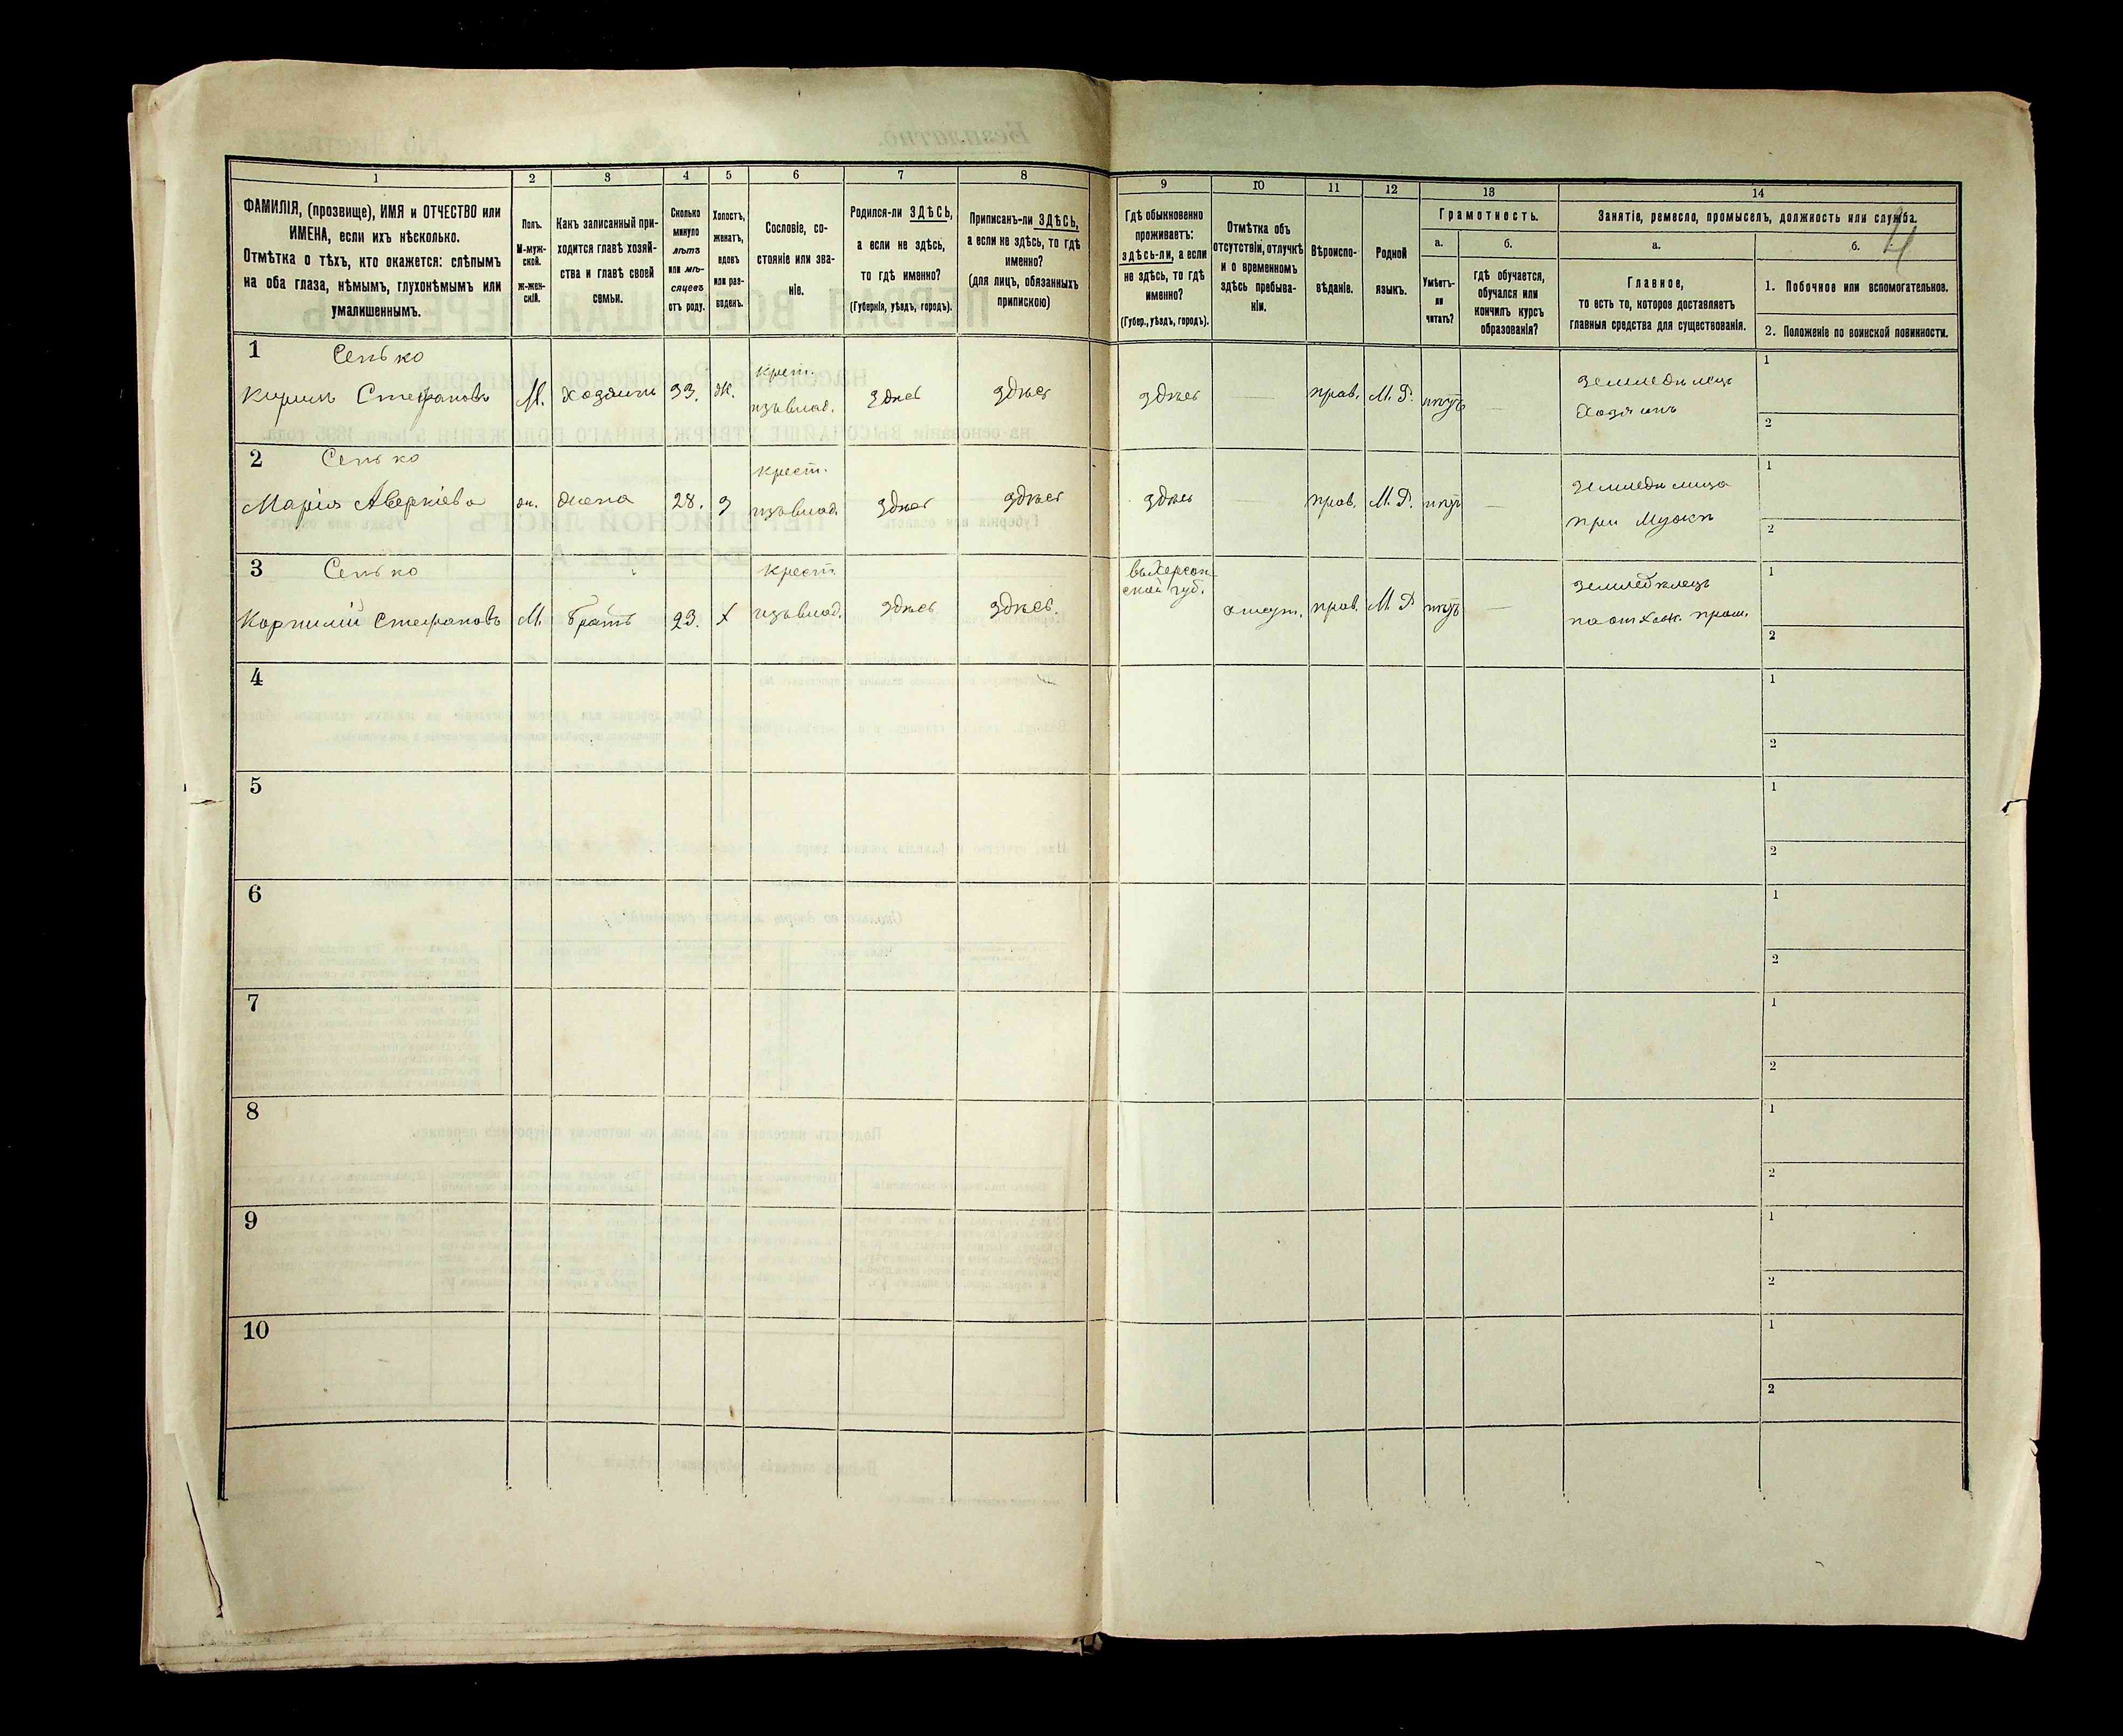 1
2
3
4
5
6
7
8
ФАМИЛІЯ, (прозвище), ИМЯ и ОТЧЕСТВО или
ИМЕНА, если ихъ нѣсколько.
Отмѣтка о тѣхъ, кто окажется: слѣпымъ
на оба глаза, нѣмымъ, глухонѣмымъ или
умалишеннымъ.
Полъ.
М-муж-
ской.
ж-жен-
скій.
Какъ записанный при-
ходится главѣ хозяй-
ства и главѣ своей
семьи.
Сколько
минуло
лѣтъ
или мѣ-
сяцевъ
отъ роду.
Холостъ,
женатъ,
вдовъ
или раз-
веденъ.
Сословіе, со-
стояніе или зва-
ніе.
Родился-ли ЗДѢСЬ,
а если не здѣсь,
то гдѣ именно?
(Губернія, уѣздъ, городъ).
Приписанъ-ли ЗДѢСЬ,
а если не здѣсь, то гдѣ
именно?
(для лицъ, обязанныхъ
припискою)
9
10
11
12
13
14
Гдѣ обыкновенно
проживаетъ:
здѣсь-ли, а если
не здѣсь, то гдѣ
именно?
(Губер., уѣздъ, городъ).
Отмѣтка объ
отсутствіи, отлучкѣ
и о временномъ
здѣсь пребыва-
ніи.
Вѣроиспо-
вѣданіе.
Родной
языкъ.
Грамотность.
а.
б.
Умѣетъ-
ли
читать?
гдѣ обучается,
обучался или
кончилъ курсъ
образованія?
Занятіе, ремесло, промыселъ, должность или служба.
а.
б.
4
Главное,
то есть то, которое доставляетъ
главныя средства для существованія.
1. Побочное или вспомогательное.
2. Положеніе по воинской повинности.
1
Сенько
Кирилъ Стефановъ
М.
Хозяинъ
33.
Ж.
Крест.
изъ влад.
здѣсь
здѣсь
здѣсь
прав.
М. Р.
нѣтъ
Земледѣлецъ
Хозяинъ
1
2
2
Сенько
Марія Аверкіева
ж.
жена
28.
з
Крест.
изъ влад.
здѣсь
здѣсь
здѣсь
прав.
М. Р.
нѣтъ
Земледѣлица
при Мужѣ
1
2
3
Сенько
Корнилій Стефановъ
М.
братъ
23.
х
Крест.
изъ влад.
здѣсь
здѣсь.
въ Херсон-
ской губ.
отсут.
прав.
М. Р
нѣтъ
Земледѣлецъ
на отхож. пром.
1
2
4
1
2
5
1
2
6
1
2
7
1
2
8
1
2
9
1
2
10
1
2